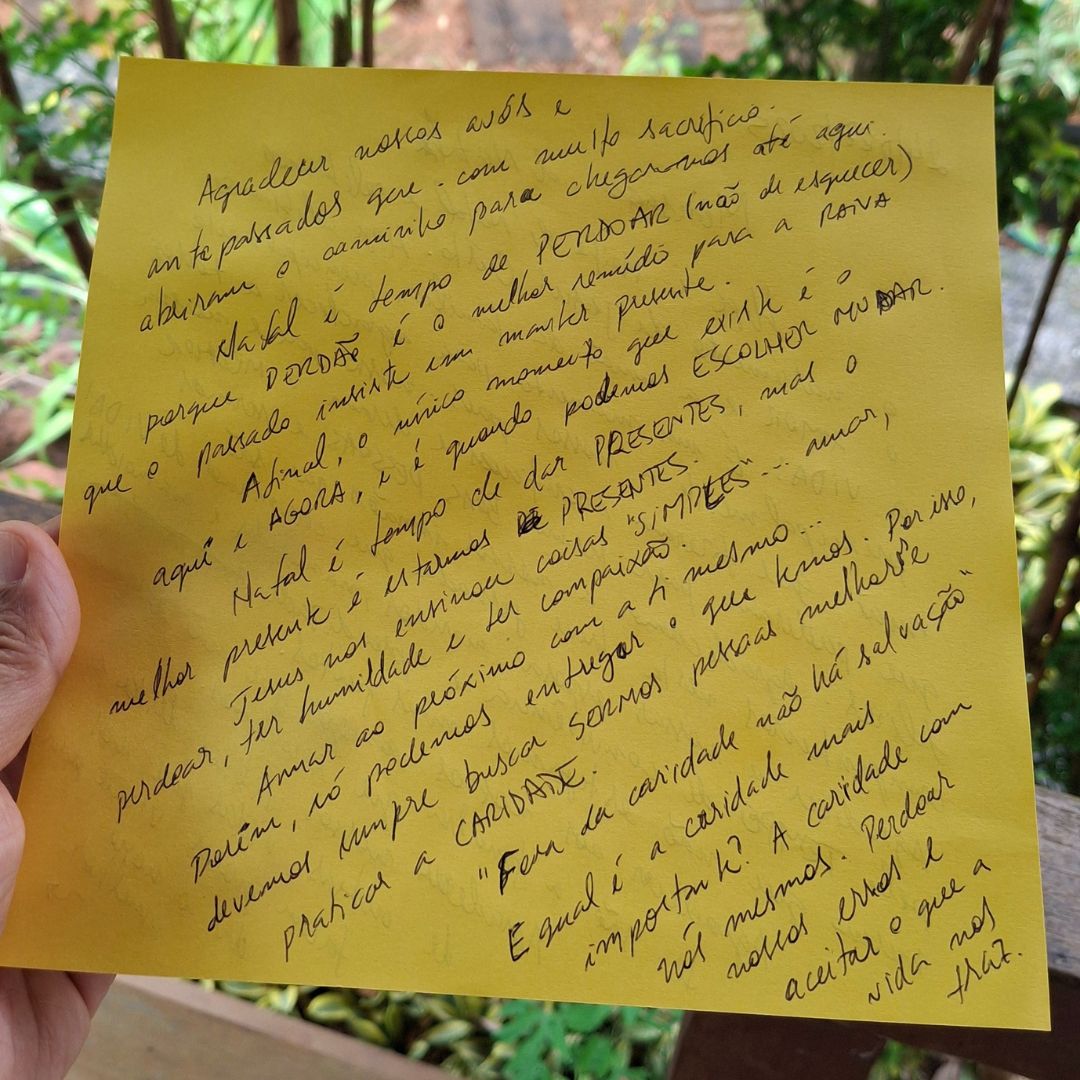 Agradecer nossos avós e
antepassados que com muito sacrifício.
abriram o caminho para chegarmos até aqui.
Natal é tempo de PERDOAR (não de esquecer)
porque PERDÃO é o melhor remédio para a RAIVA
que o passado insiste em manter presente.
Afinal, o único momento que existe é o
aqui e AGORA, e é quando podemos ESCOLHER MUDAR.
Natal é tempo de dar PRESENTES, mas o
melhor presente é estarmos PRESENTES.
Jesus nos ensinou coisas "SIMPLES"... amar,
perdoar, ter humildade e ter compaixão.
Amar ao próximo como a ti mesmo...
Porém, só podemos entregar o que temos. Por isso,
devemos sempre buscar SERMOS pessoas melhores e
praticar a CARIDADE.
"Fora da caridade não há salvação"
E qual é a caridade mais
importante? A caridade com
nós mesmos. Perdoar
nossos erros e
aceitar o que a
vida nos
traz.